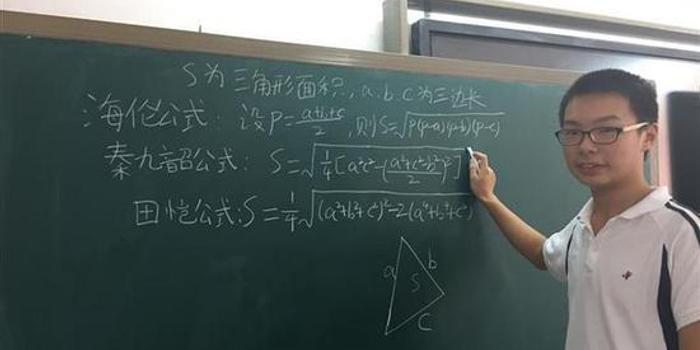 S为三角形面积，a.b.c为三边长
海伦公式：设P=\frac{a+b+c}{2}，则S=\sqrt{P(p-a)(p-b)(p-c)}
秦九韶公式：S=\sqrt{\frac{1}{4}[a²c²-(\frac{a²+c²-b²}{2})²]}
田恺公式：S=\frac{1}{4}\sqrt{(a²+b²+c²)²-2(a⁴+b⁴+c⁴)}
a
b
S
C